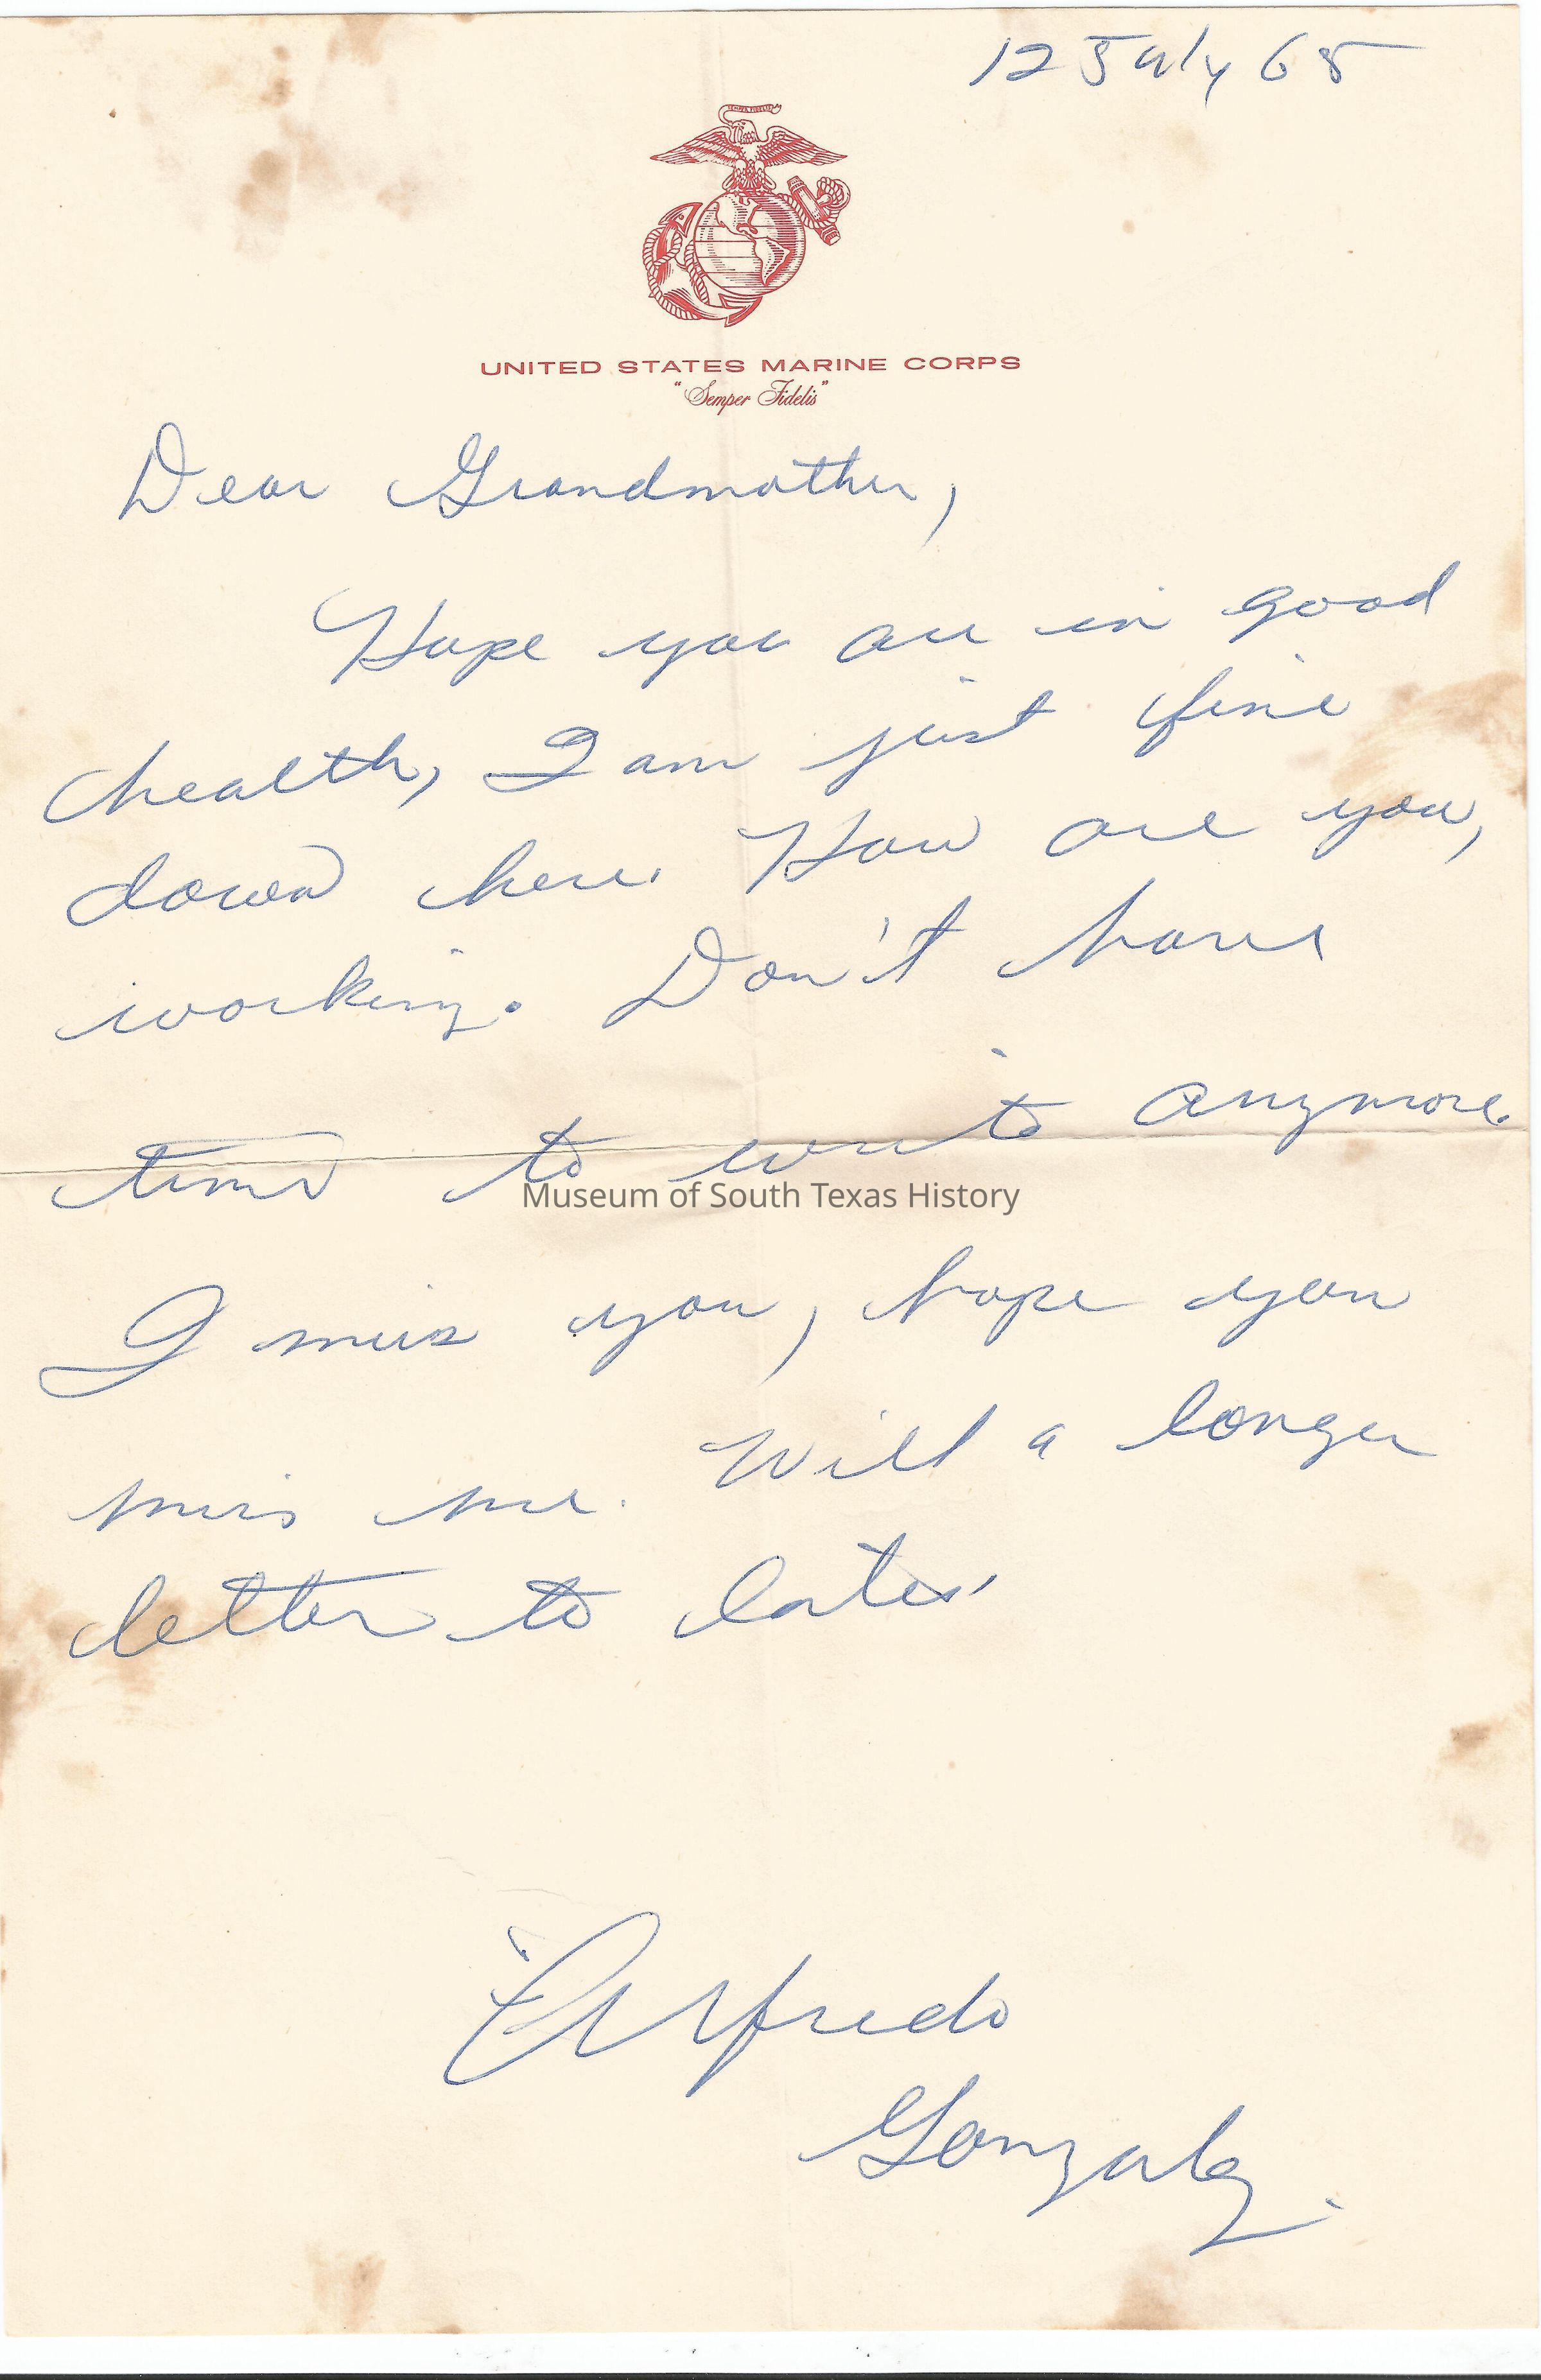 12 July 65
SEMPER FIDELIS
UNITED STATES MARINE CORPS
"Semper Fidelis"
Dear Grandmother,
Hope you are in good
health, I am just fine
down here. How are you,
working. Don't have
time to write anymore.
Museum of South Texas History
I miss you, hope you
miss me. Will a longer
letter to later.
Alfredo
Gonzalez.